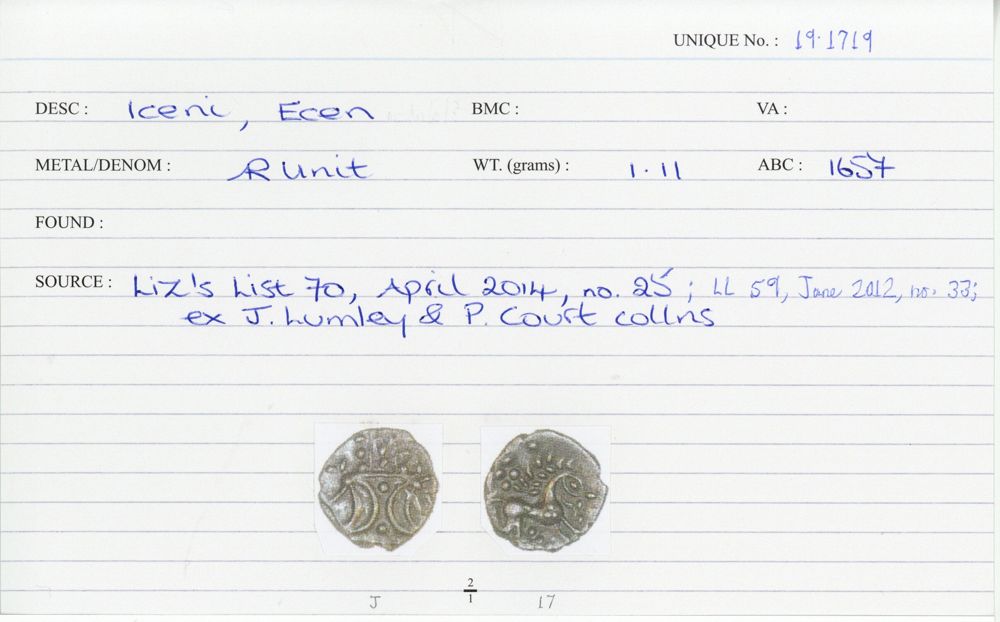 UNIQUE No. : 19.1719
DESC : Iceni, Ecen BMC : VA :
METAL/DENOM : AR Unit WT. (grams) : 1.11 ABC : 1657
FOUND :
SOURCE : Liz's List 70, April 2014, no. 25 ; LL 59, June 2012, no. 33;
ex J. Lumley & P. Court collns
2
J 1 17